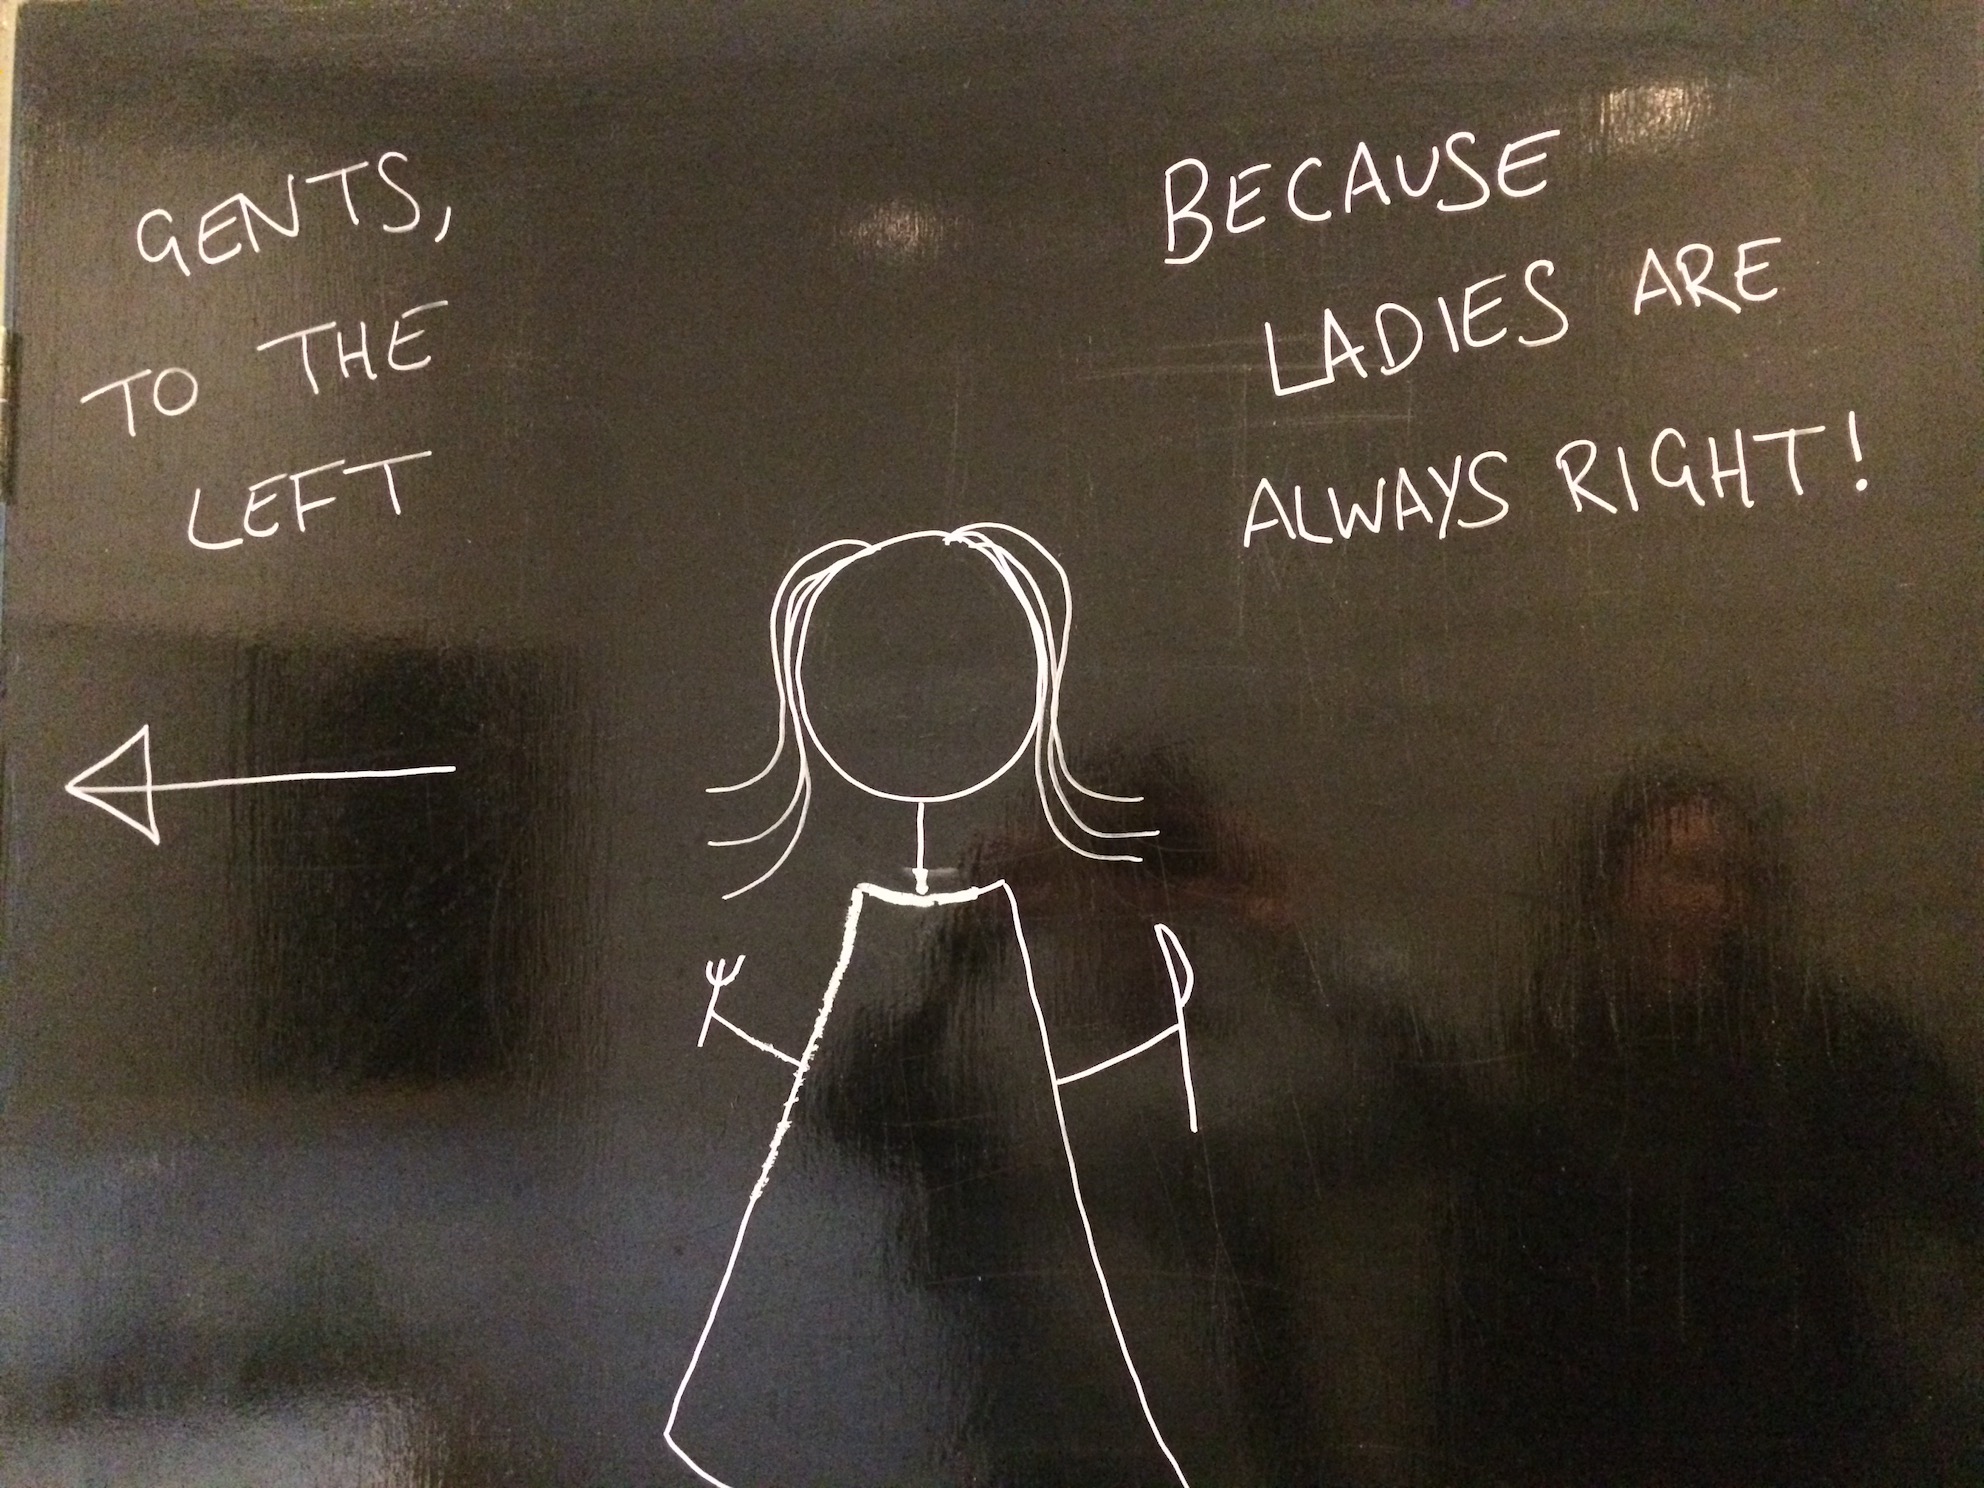 GENTS,
TO THE
LEFT
BECAUSE
LADIES ARE
ALWAYS RIGHT!